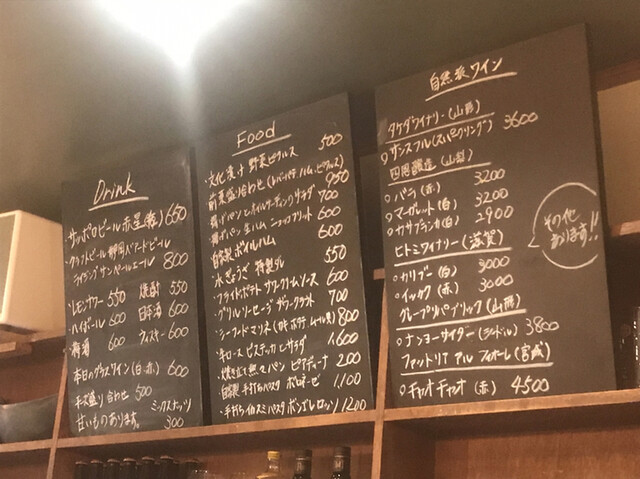 Drink
・サッポロビール赤星(瓶) 650
・クラフトビール 静岡ベアードビール
ライジングサンペールエール 800
・レモンサワー 550 焼酎 550
・ハイボール 600 日本酒 600
・梅酒 600 ウィスキー 600
本日のグラスワイン(白・赤) 600
チーズ盛り合わせ 500
甘いものあります。 ミックスナッツ 300
Food
・文化漬け 野菜ピクルス 500
・前菜盛り合わせ(レバーパテ、ハム、ピクルス) 950
サラダ 700
600
・自家製 ボイルハム 600
・水ぎょうざ 特製ダレ 550
・フライドポテト サワークリームソース 600
・グリルソーセージ ザワークラウト 700
・シーフードミックス 800
ビステッカ サラダ 1,600
・焼きたて 黒パン ピアディーナ 200
・自家製 手打ちパスタ ボロネーゼ 1,100
・手打ちイカスミパスタ ボンゴレロッソ 1200
自然派ワイン
タケダワイナリー(山形)
○サンスフル(スパークリング) 3600
四恩醸造(山梨)
○バラ(赤) 3200
○マーガレット(白) 3200
○カサブランカ(白) 2900
ヒトミワイナリー(滋賀)
○カリブー(白) 3000
○イッカク(赤) 3000
グレープリパブリック(山形)
○ナンヨーサイダー(シードル) 3800
ファットリア アル フィオーレ(宮城)
○チャオチャオ(赤) 4500
その他
あります!!